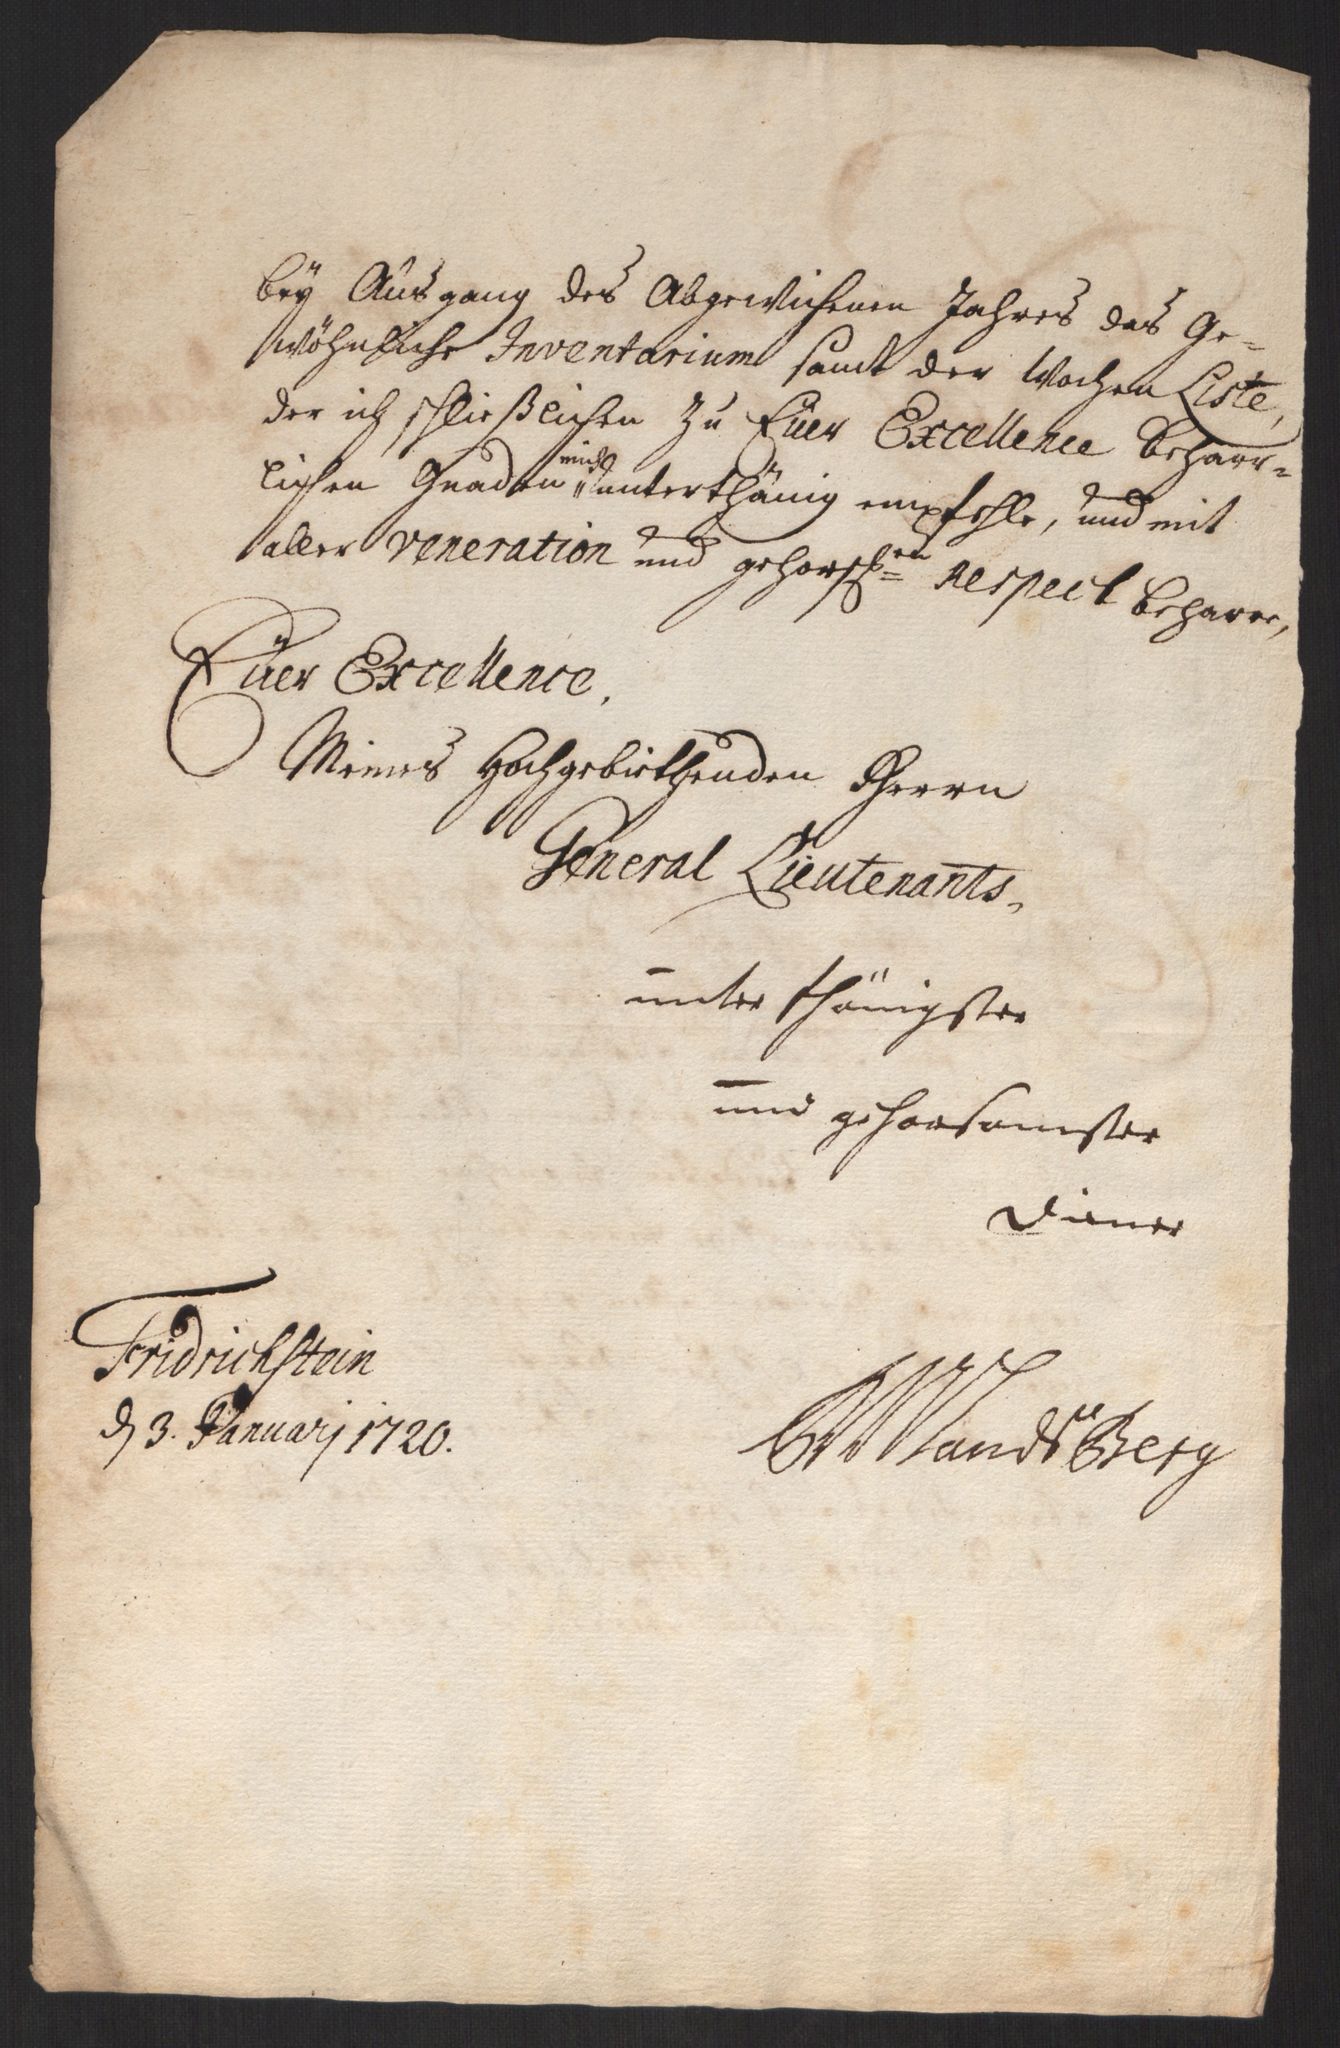 beÿ Ausgang des Abgewichenen Jahres das Ge-
wöhnliche Inventarium samt der Wochen Liste,
der ich schließlichen zu Eüer Excellence beharr=
lichen Gnaden mich unterthänig empfehle, und mit
aller veneration und gehors=en respect beharre,
Eüer Excellence,
Meines Hochgebiethenden Herrn
General Lieutenants,
unterthänigster
und gehorsamster
Diener
Fridrichstein
d 3. Januarj 1720.
LandsBerg